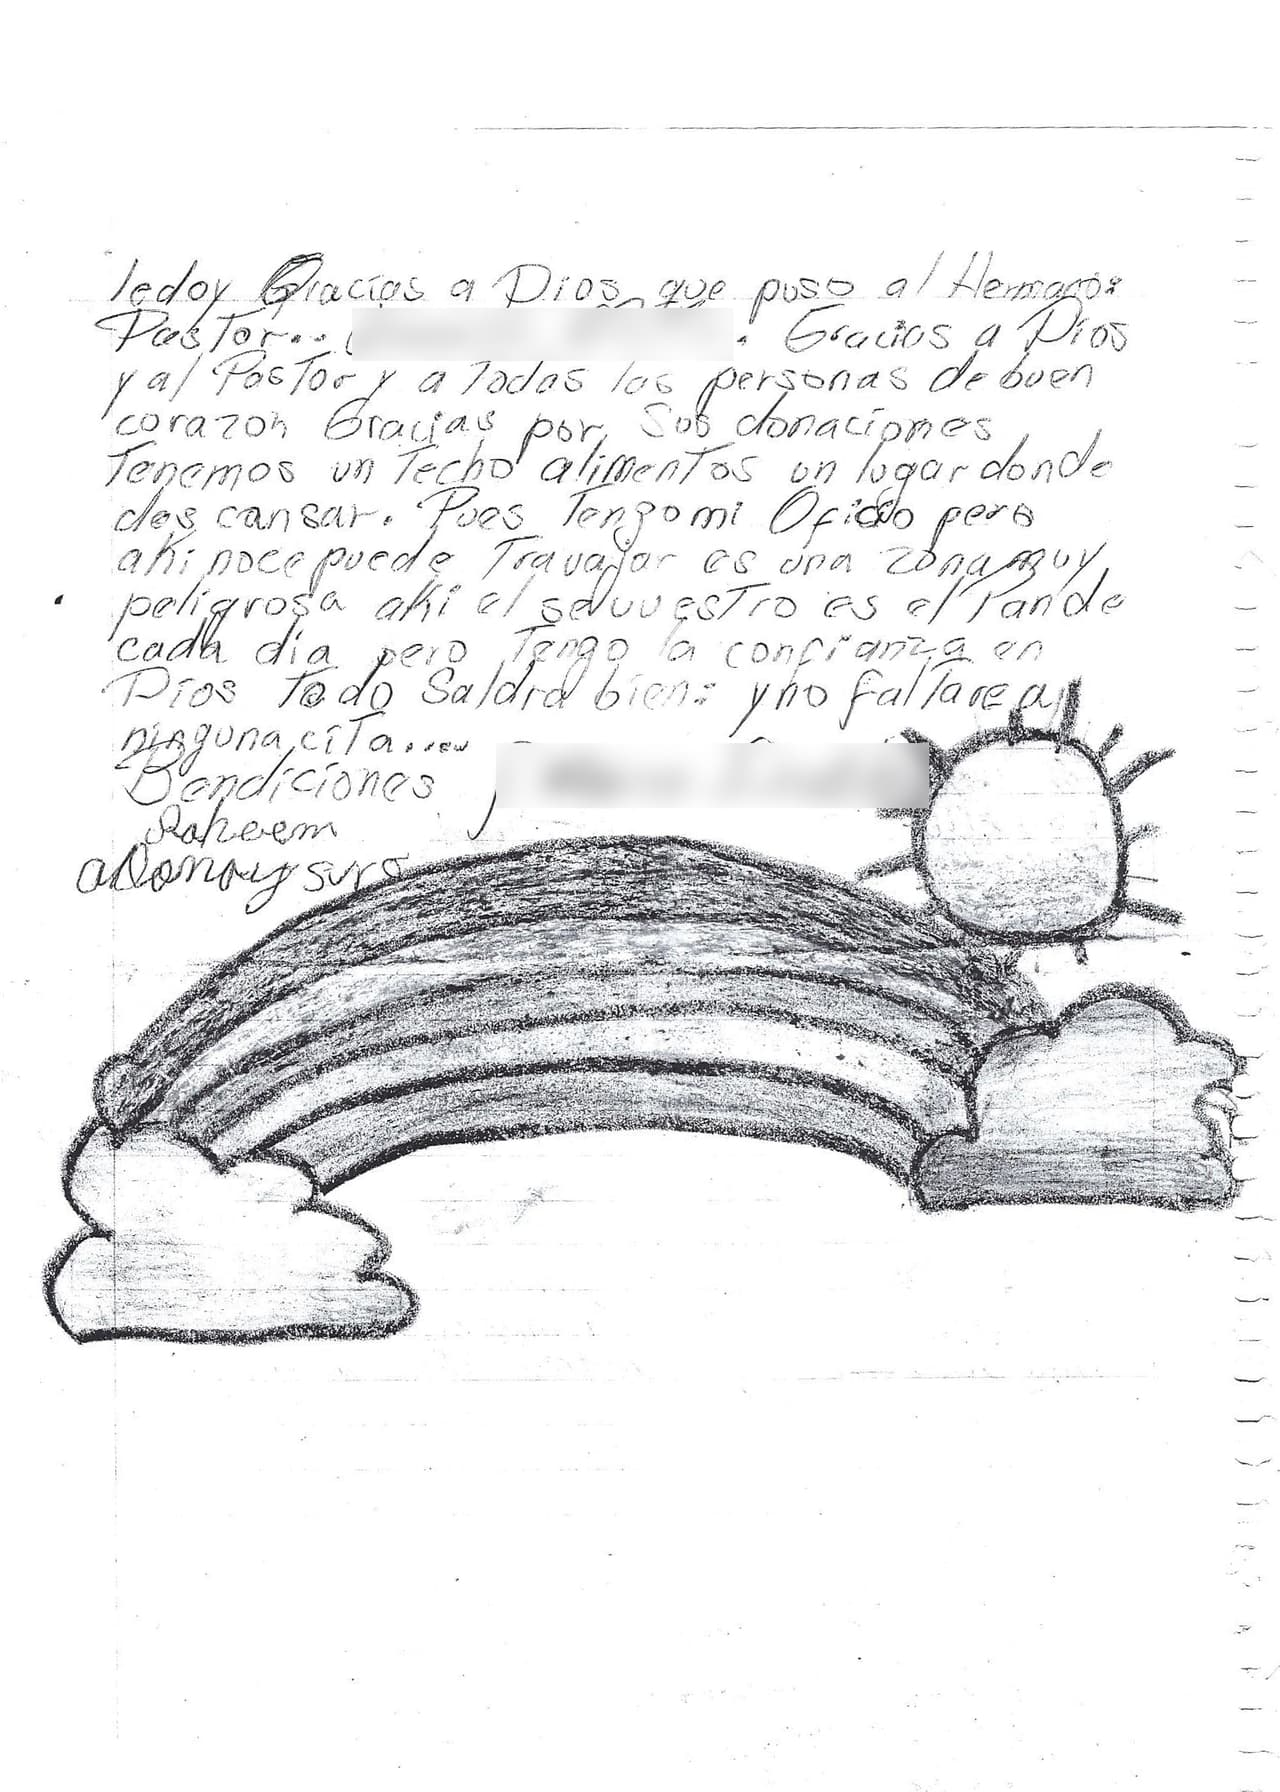 le doy Gracias a Dios que puso al Hermano:
Pastor.. . Gracias a Dios
y al Pastor y a Todas las personas de buen
corazon Gracias por Sus donaciones
Tenemos un Techo alimentos un lugar donde
des cansar. Pues Tengo mi Oficio pero
aki no ce puede Travajar es una zona muy
peligrosa aki el secuestro es el Pan de
cada dia pero Tengo la confianza en
Dios Todo Saldra bien: y no faltare a
ninguna cita.....
Bendiciones